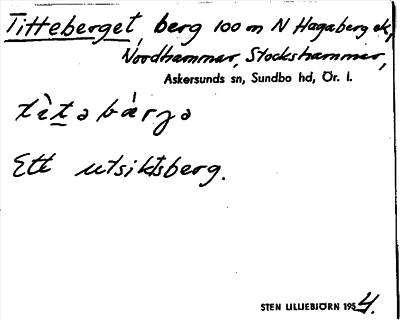 Titteberget, berg 100 m N Hagaberg ek,
Nordhammar, Stockshammar,
Askersunds sn, Sundbo hd, Ör. l.
tìtəbárjə
Ett utsiktsberg.
STEN LILLIEBJÖRN 1954.